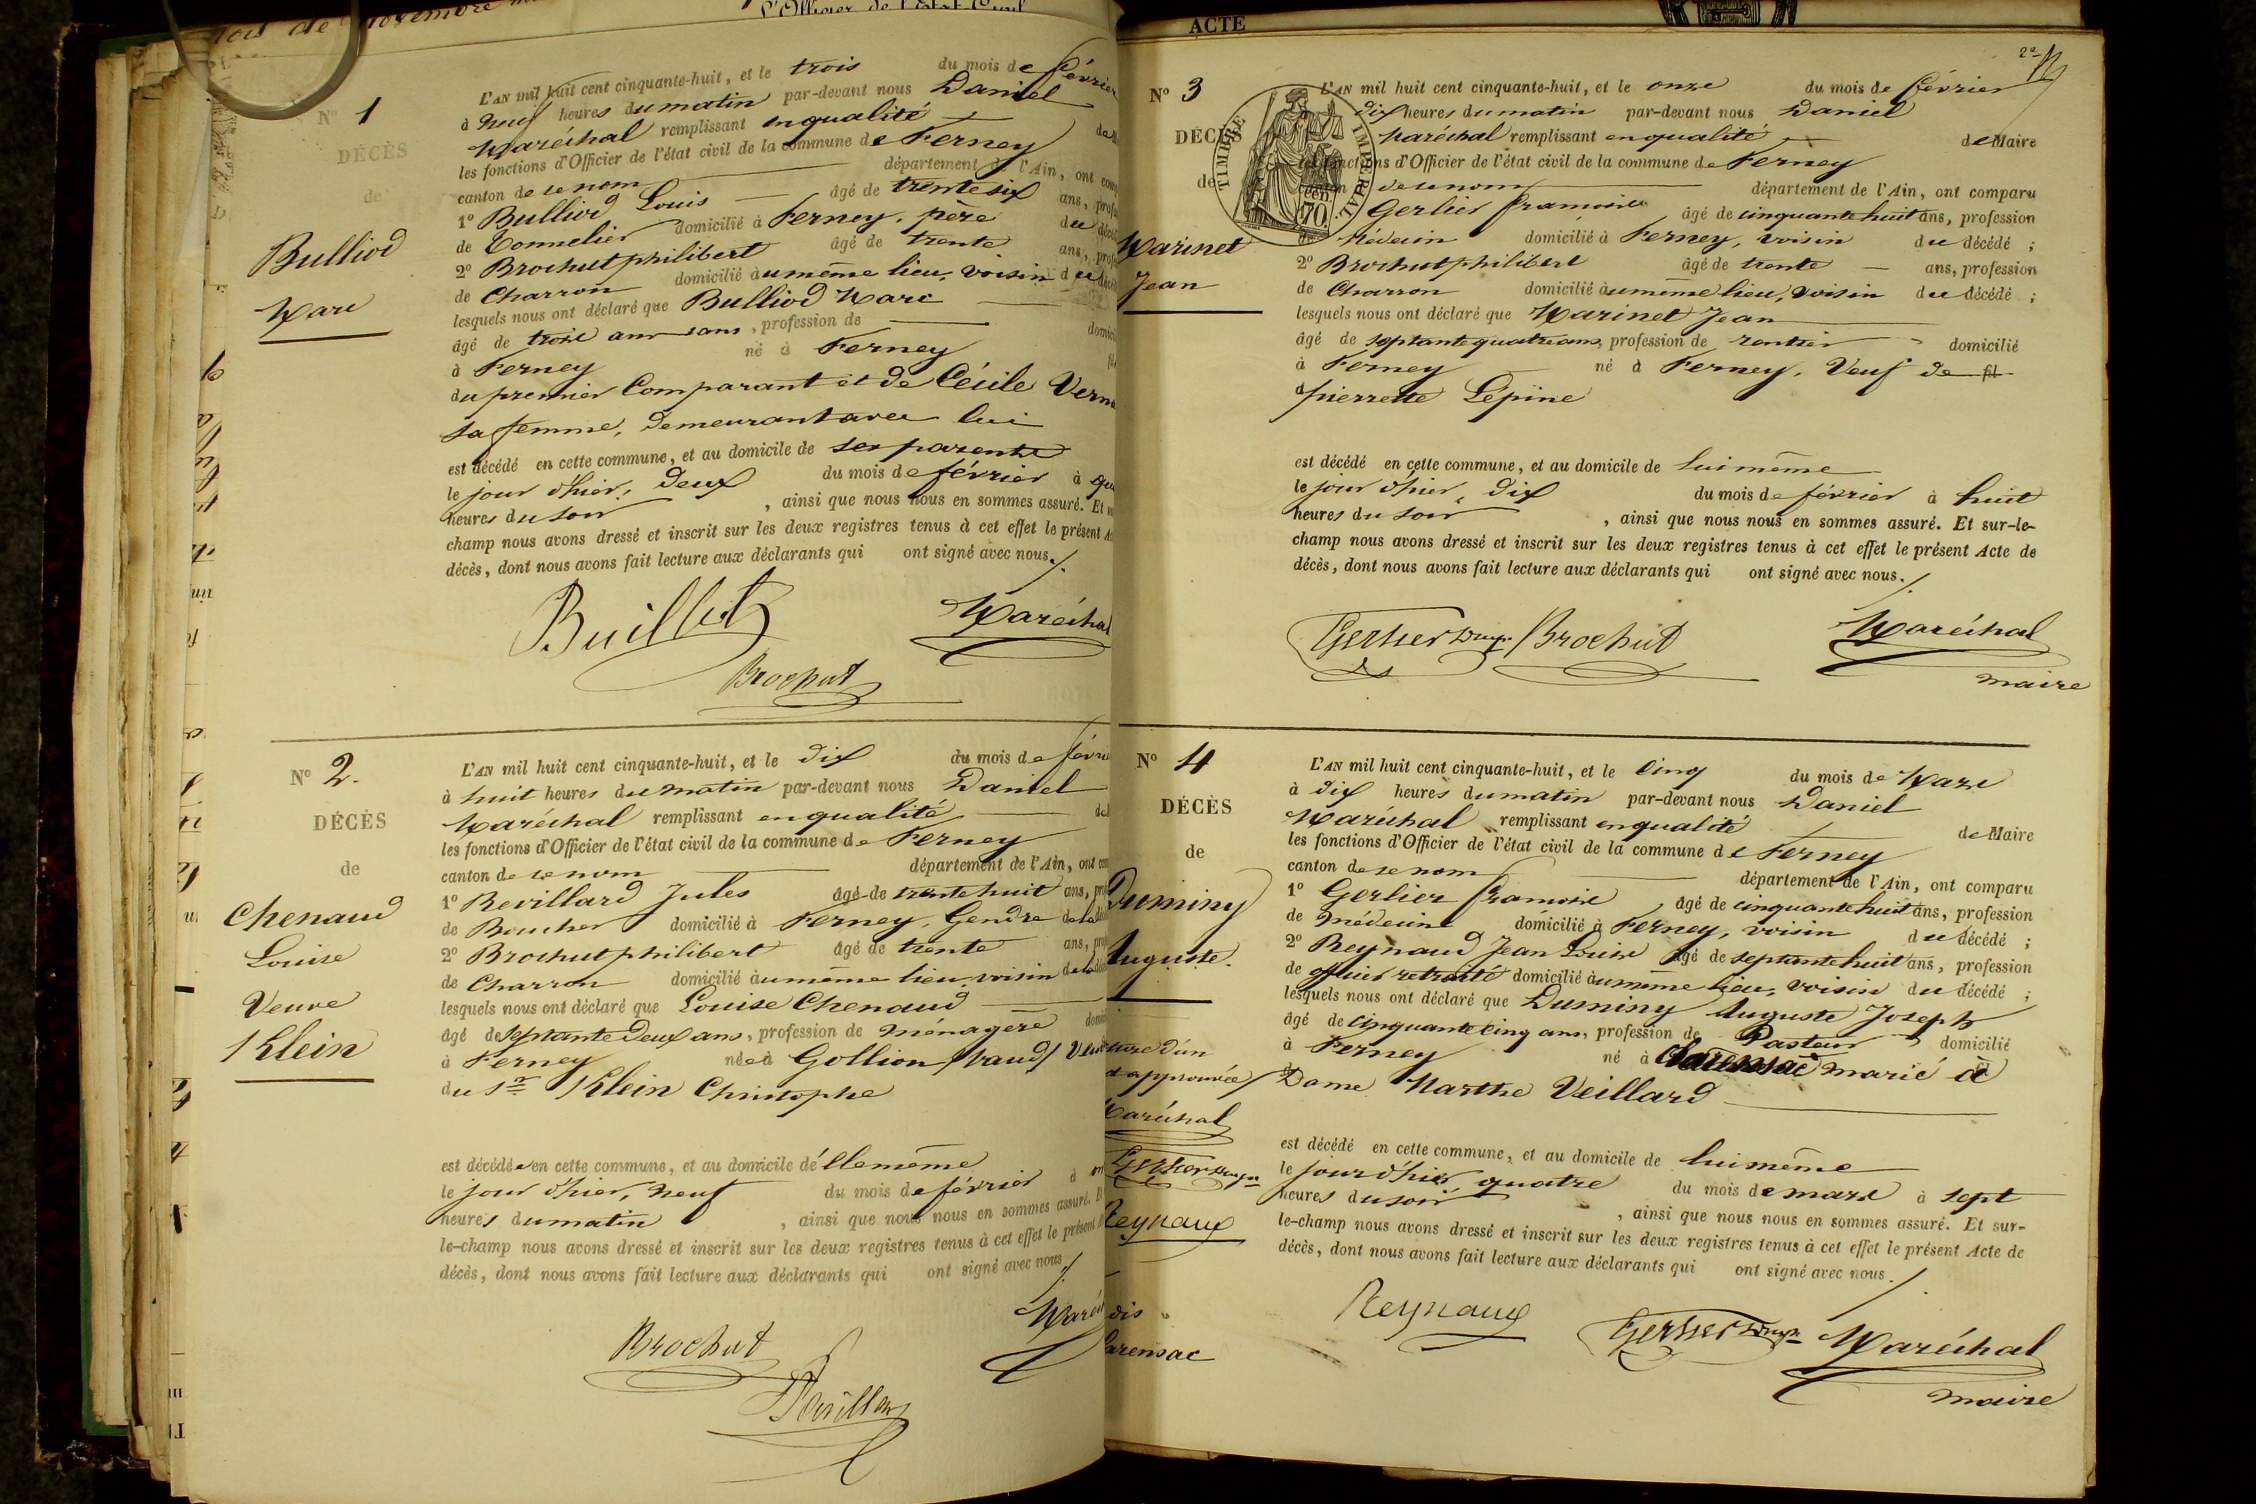 mois de Novembre
L'Officier de l'Etat Civil
N° 1
DÉCÈS
de
Bulliod
Marc
L'AN mil huit cent cinquante-huit, et le trois du mois de février
à neuf heures du matin par-devant nous Daniel
Maréchal remplissant en qualité de
les fonctions d'Officier de l'état civil de la commune de Ferney
canton de ce nom département de l'Ain, ont
1° Bulliod Louis âgé de trente six ans,
de Tonnelier domicilié à Ferney, père du
2° Brochut philibert âgé de trente ans,
de Charron domicilié au même lieu, voisin du
lesquels nous ont déclaré que Bulliod Marc
âgé de trois ans sans, profession de
à Ferney né à Ferney
du premier Comparant et de Cécile
sa femme, demeurant avec lui
est décédé en cette commune, et au domicile de ses parents
le jour d'hier, deux du mois de février à
heures du soir, ainsi que nous nous en sommes assuré. Et
champ nous avons dressé et inscrit sur les deux registres tenus à cet effet le présent
décès, dont nous avons fait lecture aux déclarants qui ont signé avec nous./.
Maréchal
Brochut
N° 2.
DÉCÈS
de
Chenaud
Louise
Veuve
Klein
L'AN mil huit cent cinquante-huit, et le dix du mois de
à huit heures du matin par-devant nous Daniel
Maréchal remplissant en qualité
les fonctions d'Officier de l'état civil de la commune de Ferney
canton de ce nom département de l'Ain, ont
1° Revillard Jules âgé de trente huit ans,
de Boucher domicilié à Ferney, Gendre de la
2° Brochut philibert âgé de trente ans,
de Charron domicilié au même lieu, voisin de la
lesquels nous ont déclaré que Louise Chenaud
âgé de septante deux ans, profession de ménagère
à Ferney née à Gollion (vaud)
du Sr Klein Christophe
est décédée en cette commune, et au domicile d'Elle même
le jour d'hier, neuf du mois de février à
heures du matin, ainsi que nous nous en sommes assuré.
le-champ nous avons dressé et inscrit sur les deux registres tenus à cet effet le présent
décès, dont nous avons fait lecture aux déclarants qui ont signé avec nous./.
Brochut
ACTE
N° 3
DÉCÈS
de
Marinet
Jean
TIMBRE IMPÉRIAL.
70.
L'AN mil huit cent cinquante-huit, et le onze du mois de février
dix heures du matin par-devant nous Daniel
Maréchal remplissant en qualité de Maire
les fonctions d'Officier de l'état civil de la commune de Ferney
canton de ce nom département de l'Ain, ont comparu
Gerlier françois âgé de cinquante huit ans, profession
de Médecin domicilié à Ferney, voisin du décédé ;
2° Brochut philibert âgé de trente ans, profession
de Charron domicilié au même lieu, voisin du décédé ;
lesquels nous ont déclaré que Marinet Jean
âgé de septante quatre ans, profession de rentier domicilié
à Ferney né à Ferney, Veuf de fil
pierrette Lépine
est décédé en cette commune, et au domicile de lui même
le jour d'hier, dix du mois de février à huit
heures du soir, ainsi que nous nous en sommes assuré. Et sur-le-
champ nous avons dressé et inscrit sur les deux registres tenus à cet effet le présent Acte de
décès, dont nous avons fait lecture aux déclarants qui ont signé avec nous./.
Gerlier Brochut Maréchal
maire
N° 4
DÉCÈS
de
Duminy
Auguste.
L'AN mil huit cent cinquante-huit, et le cinq du mois de Mars
à dix heures du matin par-devant nous Daniel
Maréchal remplissant en qualité de Maire
les fonctions d'Officier de l'état civil de la commune de Ferney
canton de ce nom département de l'Ain, ont comparu
1° Gerlier françois âgé de cinquante huit ans, profession
de médecine domicilié à Ferney, voisin du décédé ;
2° Reynaud Jean Louis âgé de septante huit ans, profession
de officier retraité domicilié au même lieu, voisin du décédé ;
lesquels nous ont déclaré que Duminy Auguste Joseph
âgé de cinquante cinq ans, profession de Pasteur domicilié
à Ferney né à Clarensac marié à
Dame Marthe Veillard
approuvée
Maréchal
Gerlier
Reynaud
est décédé en cette commune, et au domicile de lui même
le jour d'hier, quatre du mois de mars à sept
heures du soir, ainsi que nous nous en sommes assuré. Et sur-
le-champ nous avons dressé et inscrit sur les deux registres tenus à cet effet le présent Acte de
décès, dont nous avons fait lecture aux déclarants qui ont signé avec nous./.
Reynaud Gerlier Maréchal
maire